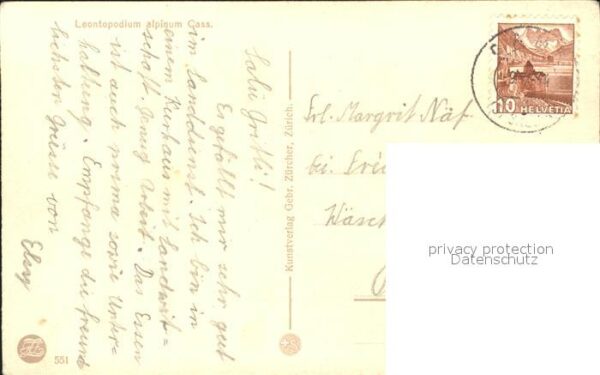 Leontopodium alpinum Cass.
Salü Gritli!
Es gefällt mir sehr gut
im Landdienst. Ich bin in
einem Kurhaus mit Landwirt=
schaft. Arbeit. Das Essen
ist auch prima sowie Unter=
haltung. Empfange die freund
lichsten Grüsse von
Kunstverlag Gebr. Zürcher, Zürich.
Frl. Margrit Näf
bei
Wäsch
10 HELVETIA
privacy protection
Datenschutz
551